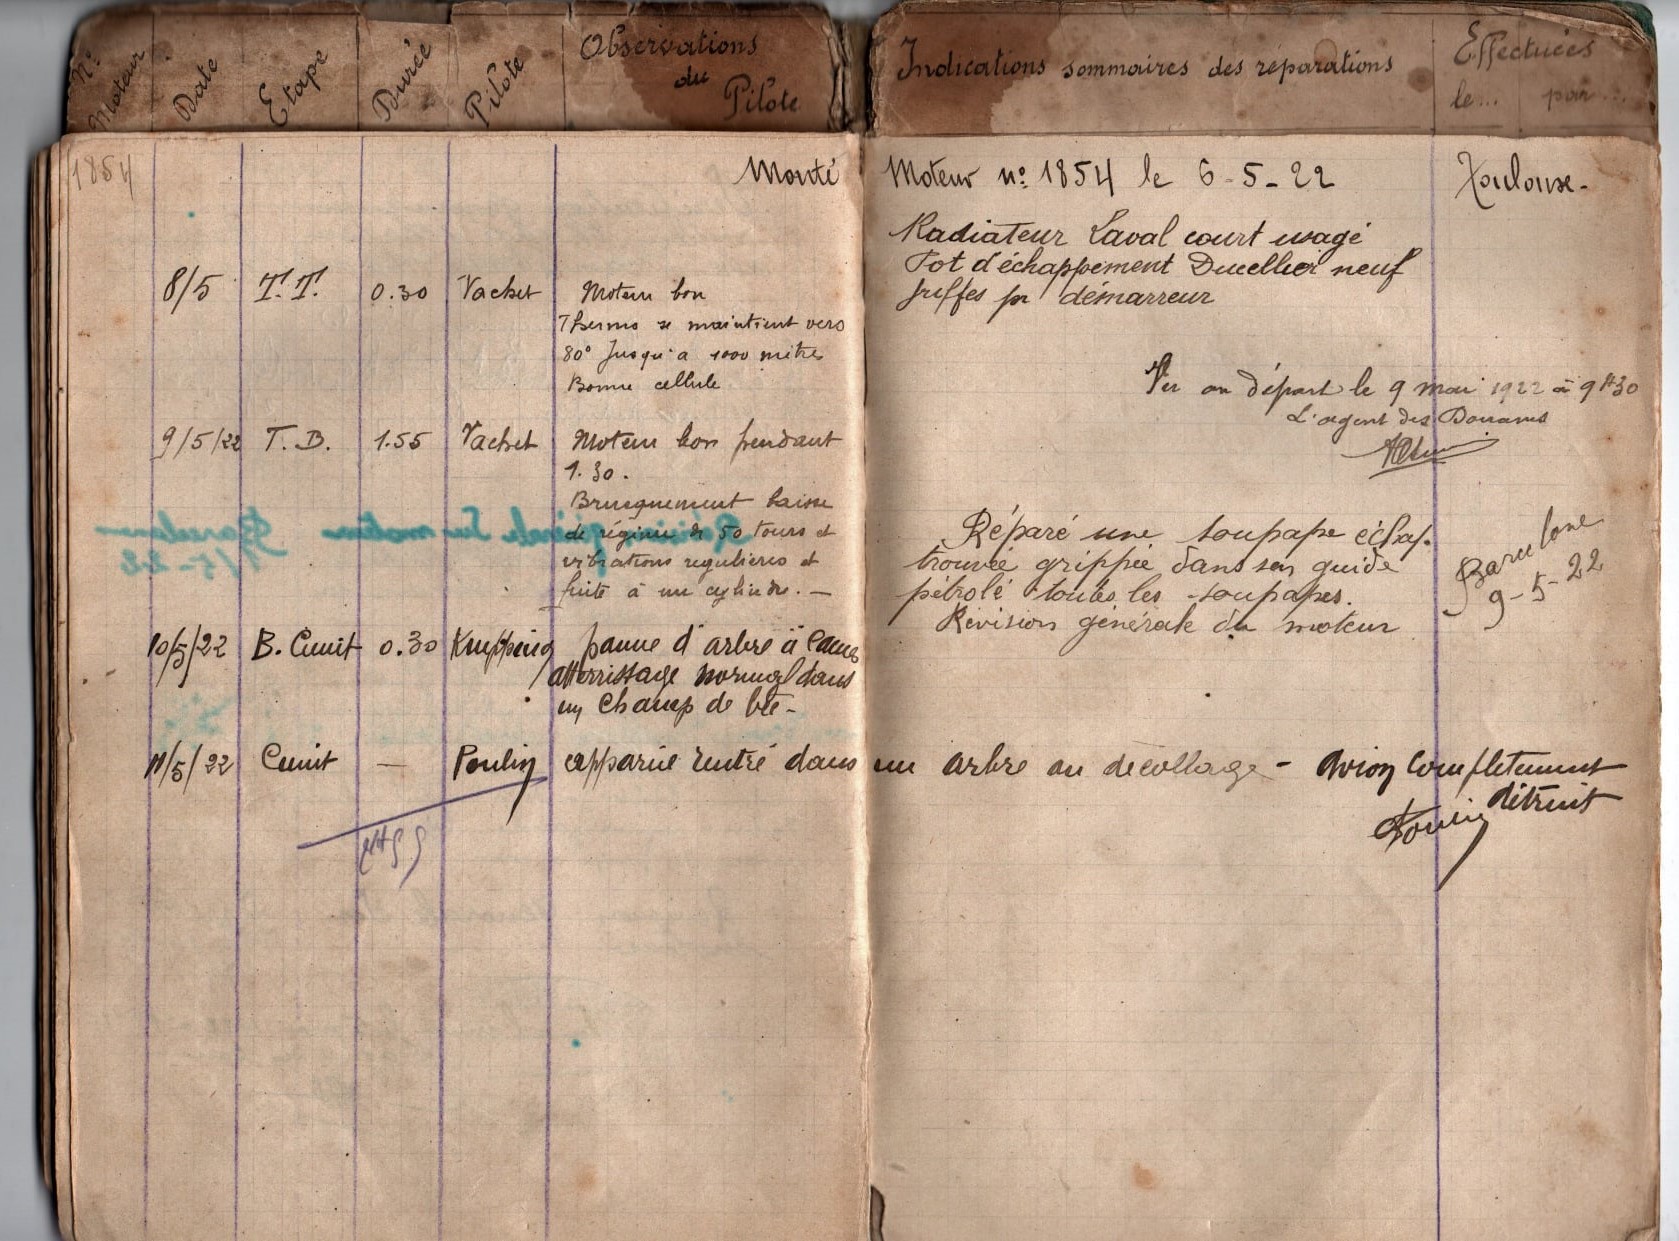 N° Moteur
Date
Etape
Durée
Pilote
Observations du Pilote
Indications sommaires des réparations
Effectuées
le... par...
1854
Monté Moteur n° 1854 le 6-5-22 Toulouse-
Radiateur Laval court usagé
Pot d'échappement Ducellier neuf
pr démarreur
8/5 T.T. 0.30 Vachet Moteur bon
Thermo se maintient vers
80° Jusqu'a 1000 mètres
Bonne cellule
Vu au départ le 9 mai 1922 à 9H30
L'agent des Douanes
9/5/22 T.B. 1.55 Vachet Moteur bon pendant
1.30.
Brusquement baisse
de régime de 50 tours et
vibrations regulieres et
fuite à un cylindre. —
Réparé une soupape échap.
trouvée grippée dans son guide
pétrolé toutes les soupapes.
Révision générale du moteur
Barcelone
9-5-22
10/5/22 B. Cunit 0.30 panne d'arbre à Cames
atterrissage normal dans
un champ de blé-
11/5/22 Cunit — Poulin apparie rentré dans un arbre au decollage - Avion Completement
détruit
Poulin